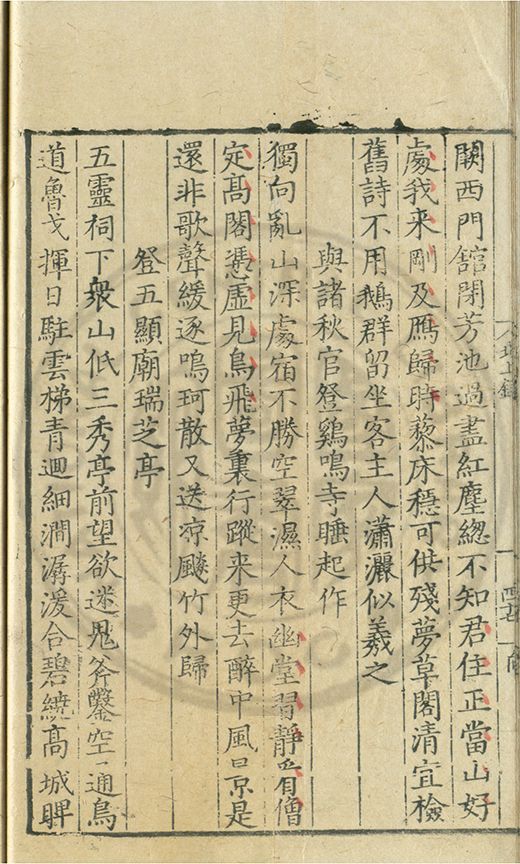 關西門舘閉芳池過盡紅塵緫不知君住正當山好
處我来剛及鴈歸時藜床穩可供殘夢草閣清宜檢
舊詩不用鵝群留坐客主人瀟灑似羲之
與諸秋官登鷄鳴寺睡起作
獨向亂山深處宿不勝空翠濕人衣幽堂習靜看僧
定高閣憑虛見鳥飛夢裏行蹤来更去醉中風景是
還非歌聲緩逐鳴珂散又送凉飈竹外歸
登五顯廟瑞芝亭
五靈祠下衆山低三秀亭前望欲迷鬼斧鑿空通鳥
道魯戈揮日駐雲梯青迴細澗潺湲合碧繞高城睥